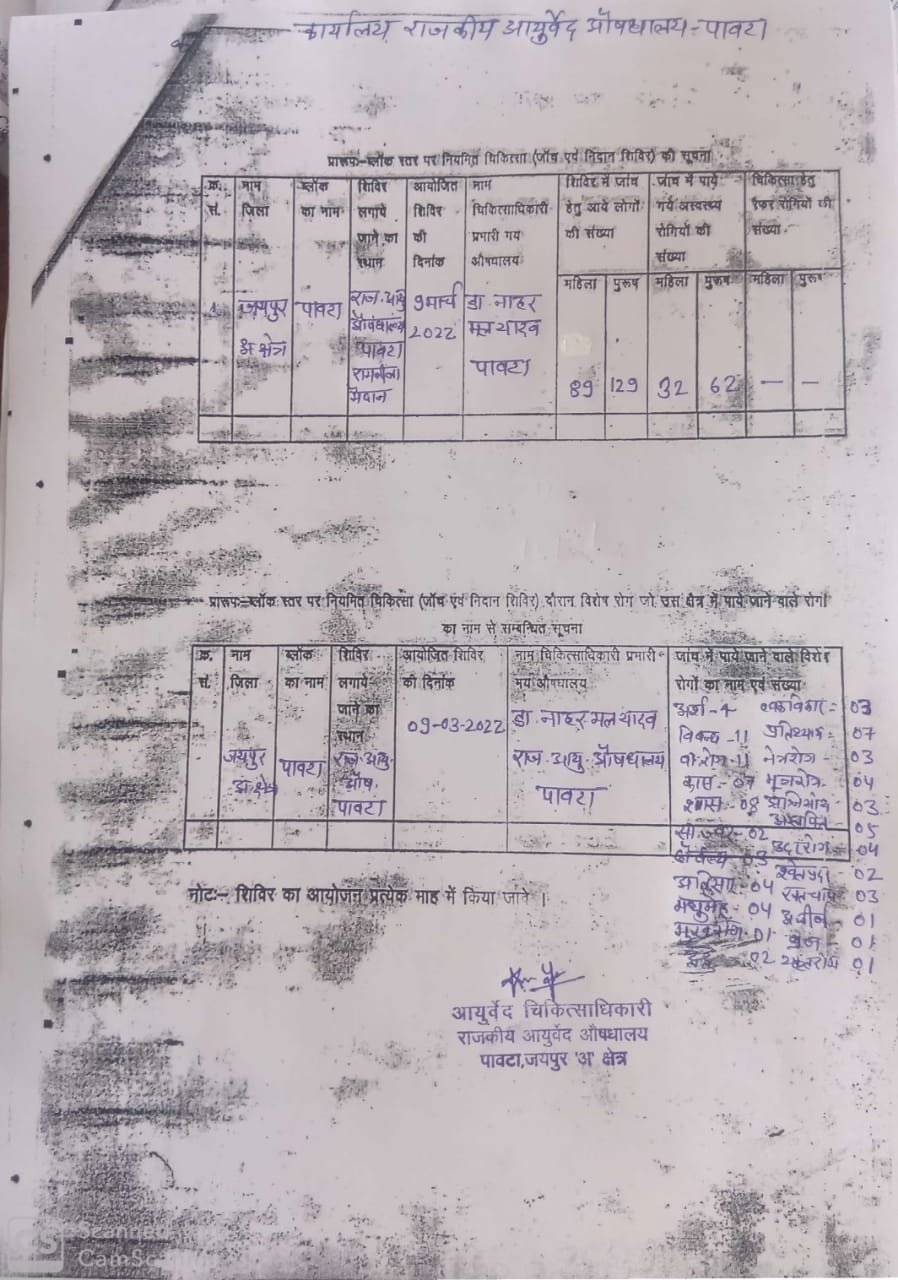 कार्यालय राजकीय आयुर्वेद औषधालय - पावटा
प्रारूप:-ब्लॉक स्तर पर नियमित चिकित्सा (जाँच एवं निदान शिविर) की सूचना
क्र. सं.
नाम जिला
ब्लॉक का नाम
शिविर लगाये जाने का स्थान
आयोजित शिविर की दिनांक
नाम चिकित्साधिकारी प्रभारी मय औषघालय
शिविर में जांच हेतु आये लोगों की संख्या
जांच में पाये गये अस्वस्थ्य रोगियों की संख्या
चिकित्सा हेतु रैफर रोगियों की संख्या
महिला पुरूष महिला पुरूष महिला पुरूष
1. जयपुर अ क्षेत्र
पावटा
राज. आयु औषधालय पावटा रामलीला मैदान
9 मार्च 2022
डा. नाहर मल यादव पावटा
89 129 32 62 — —
प्रारूप:-ब्लॉक स्तर पर नियमित चिकित्सा (जाँच एवं निदान शिविर) दौरान विशेष रोग जो उस क्षेत्र में पाये जाने वाले रोगों
का नाम से सम्बन्धित सूचना
क्र. सं.
नाम जिला
ब्लॉक का नाम
शिविर लगाये जाने का स्थान
आयोजित शिविर की दिनांक
नाम चिकित्साधिकारी प्रभारी मय औषधालय
जांच में पाये जाने वाले विशेष रोगों का नाम एवं संख्या
जयपुर अ क्षेत्र
पावटा
राज. आयु. औष. पावटा
09-03-2022
डा. नाहर मल यादव
राज. आयु. औषधालय
पावटा
अर्श - 4 03
विबन्ध - 11 प्रतिश्याय - 07
11 नेत्ररोग - 03
कास - 07 04
श्वास - 08 03
05
ज्वर - 02 04
03 02
अतिसार - 04 रक्तचाप 03
मधुमेह - 04 01
01 01
02 01
नोट:- शिविर का आयोजन प्रत्येक माह में किया जाने ।
आयुर्वेद चिकित्साधिकारी
राजकीय आयुर्वेद औषधालय
पावटा,जयपुर 'अ' क्षेत्र
CS Scanned
CamSca